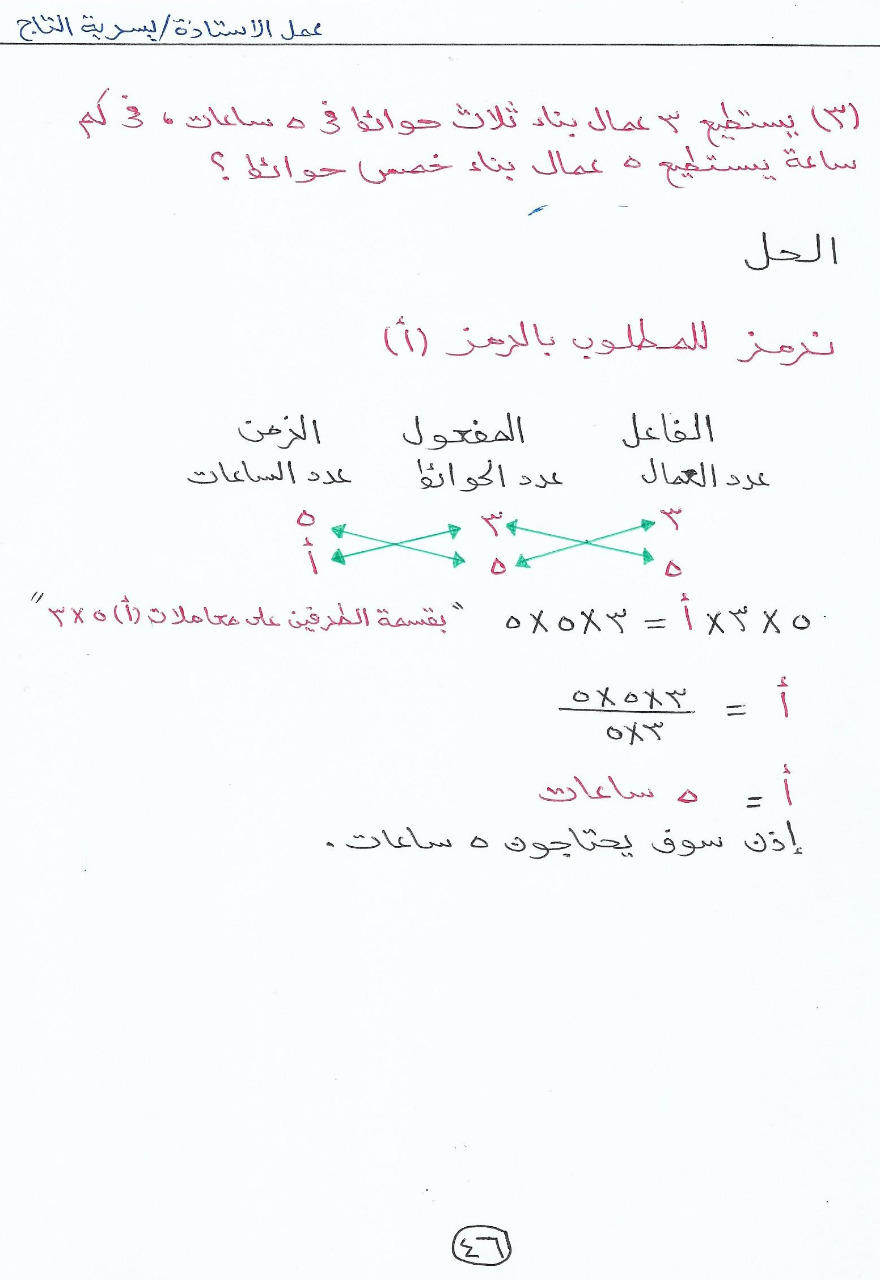 عمل الاستاذة/يسرية التاج
(٣) يستطيع ٣ عمال بناء ثلاث حوائط في ٥ ساعات ، في كم
ساعة يستطيع ٥ عمال بناء خمس حوائط ؟
الحل
نرمز للمطلوب بالرمز (أ)
الفاعل المفعول الزمن
عدد العمال عدد الحوائط عدد الساعات
٣ ٣ ٥
٥ ٥ أ
٥ × ٣ × أ = ٣ × ٥ × ٥ "بقسمة الطرفين على معاملات (أ) ٥ × ٣"
أ = ٣ × ٥ × ٥
٣ × ٥
أ = ٥ ساعات
إذن سوف يحتاجون ٥ ساعات .
٤٦